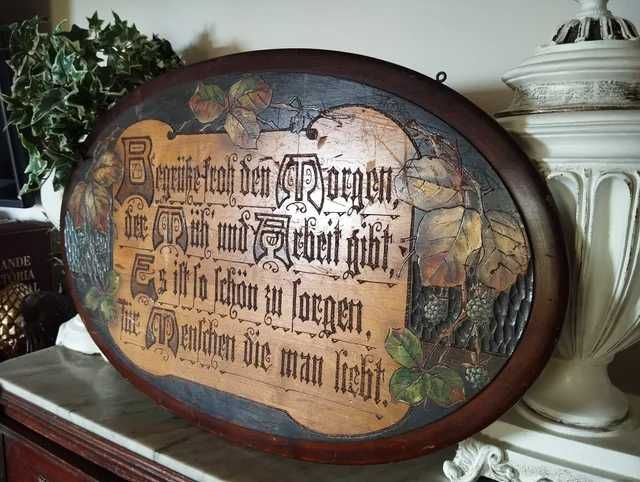 Begrüße froh den Morgen,
der Müh' und Arbeit gibt,
Es ist so schön zu sorgen,
für Menschen die man liebt.
ANDE
TORIA